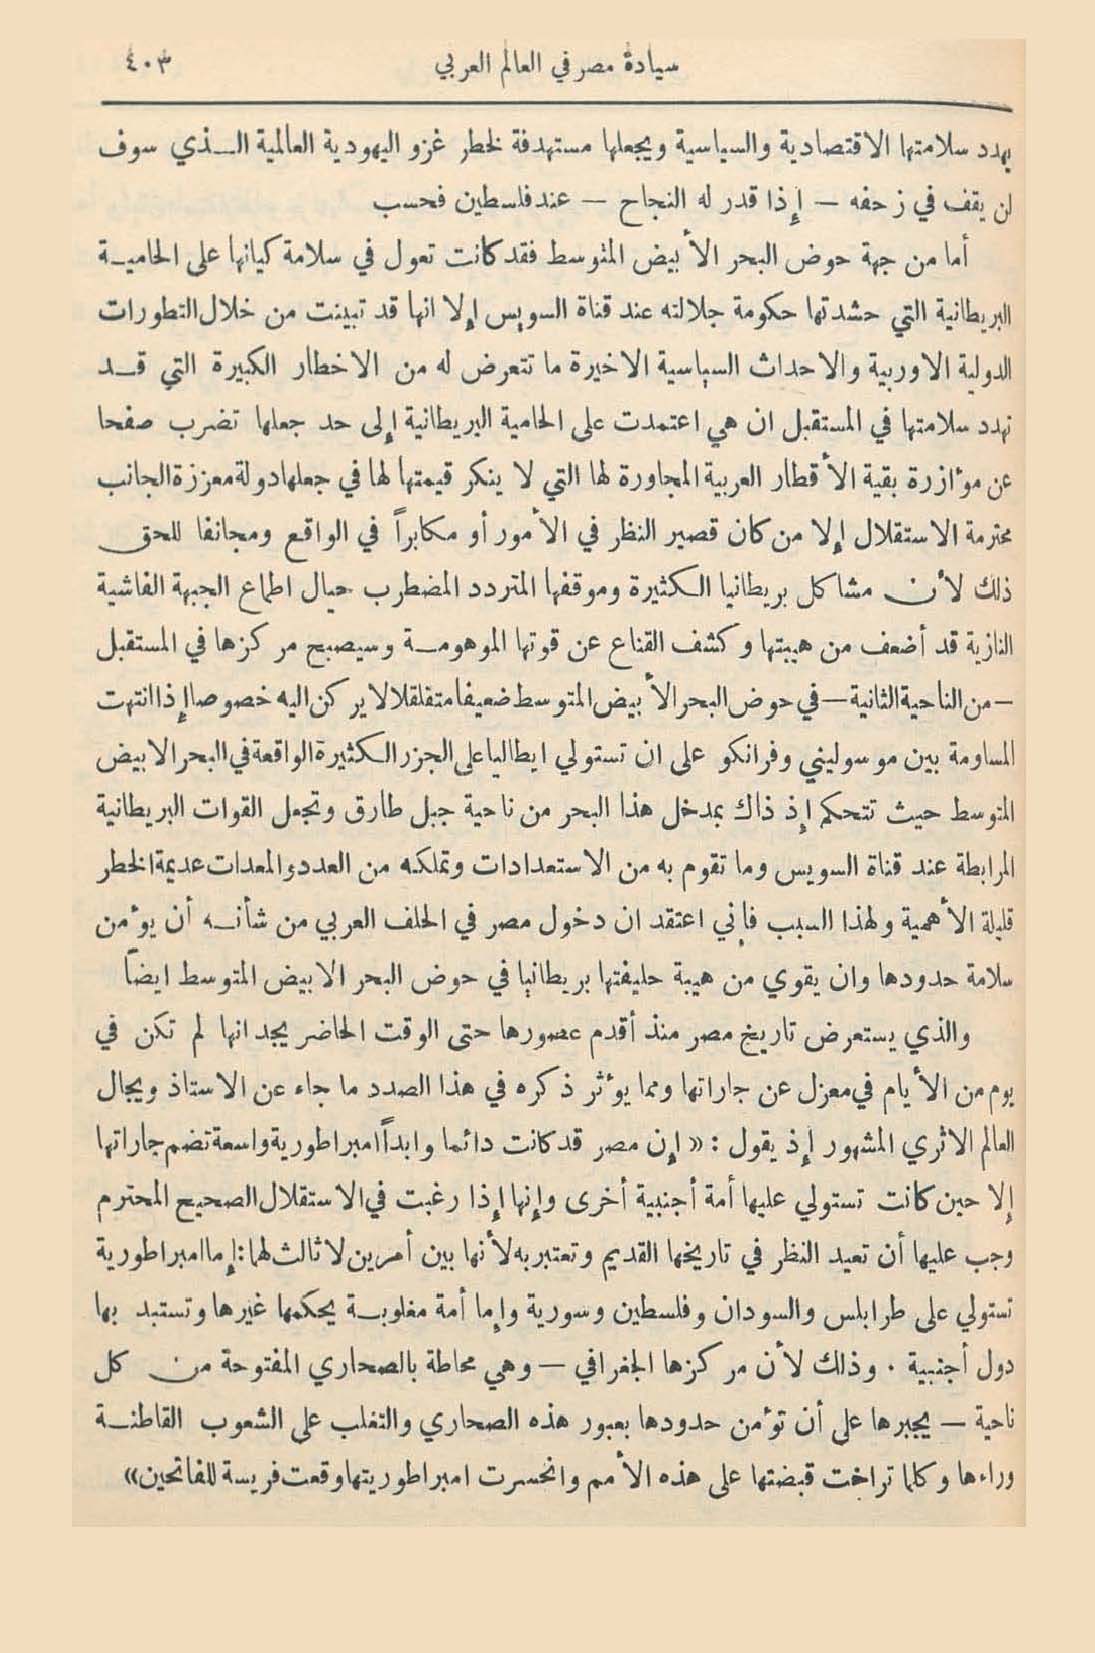 سيادة مصر في العالم العربي ٤٠٣
يهدد سلامتها الاقتصادية والسياسية ويجعلها مستهدفة لخطر غزو اليهودية العالمية الـذي سوف
لن يقف في زحفه — إذا قدر له النجاح — عند فلسطين فحسب
أما من جهة حوض البحر الأبيض المتوسط فقد كانت تعول في سلامة كيانها على الحاميـة
البريطانية التي حشدتها حكومة جلالته عند قناة السويس إلا انها قد تبينت من خلال التطورات
الدولية الاوربية والاحداث السياسية الاخيرة ما تتعرض له من الاخطار الكبيرة التي قـد
تهدد سلامتها في المستقبل ان هي اعتمدت على الحامية البريطانية إلى حد جعلها تضرب صفحا
عن مؤازرة بقية الأقطار العربية المجاورة لها التي لا ينكر قيمتها لها في جعلها دولة معززة الجانب
محترمة الاستقلال إلا من كان قصير النظر في الأمور أو مكابراً في الواقع ومجانفا للحق
ذلك لأن مشاكل بريطانيا الكثيرة وموقفها المتردد المضطرب حيال اطماع الجبهة الفاشية
النازية قد أضعف من هيبتها وكشف القناع عن قوتها الموهومـة وسيصبح مركزها في المستقبل
—من الناحية الثانية— في حوض البحر الأبيض المتوسط ضعيفا متقلقلا لا يركن اليه خصوصا إذا انتهت
المساومة بين موسوليني وفرانكو على ان تستولي ايطاليا على الجزر الكثيرة الواقعة في البحر الابيض
المتوسط حيث تتحكم إذ ذاك بمدخل هذا البحر من ناحية جبل طارق وتجعل القوات البريطانية
المرابطة عند قناة السويس وما تقوم به من الاستعدادات وتملكه من العدد والمعدات عديمة الخطر
قليلة الأهمية ولهذا السبب فإني اعتقد ان دخول مصر في الحلف العربي من شأنـه أن يؤمن
سلامة حدودها وان يقوي من هيبة حليفتها بريطانيا في حوض البحر الابيض المتوسط ايضاً
والذي يستعرض تاريخ مصر منذ أقدم عصورها حتى الوقت الحاضر يجد انها لم تكن في
يوم من الأيام في معزل عن جاراتها ومما يؤثر ذكره في هذا الصدد ما جاء عن الاستاذ ويجال
العالم الاثري المشهور إذ يقول : «إن مصر قد كانت دائما وابداً امبراطورية واسعة تضم جاراتها
إلا حين كانت تستولي عليها أمة أجنبية أخرى وإنها إذا رغبت في الاستقلال الصحيح المحترم
وجب عليها أن تعيد النظر في تاريخها القديم وتعتبر به لأنها بين أمرين لا ثالث لهما: إما امبراطورية
تستولي على طرابلس والسودان وفلسطين وسورية وإما أمة مغلوبـة يحكمها غيرها وتستبد بها
دول أجنبية . وذلك لأن مركزها الجغرافي — وهي محاطة بالصحاري المفتوحة من كل
ناحية — يجبرها على أن تؤمن حدودها بعبور هذه الصحاري والتغلب على الشعوب القاطنـة
وراءها وكلما تراخت قبضتها على هذه الأمم وانحسرت امبراطوريتها وقعت فريسة للفاتحين»